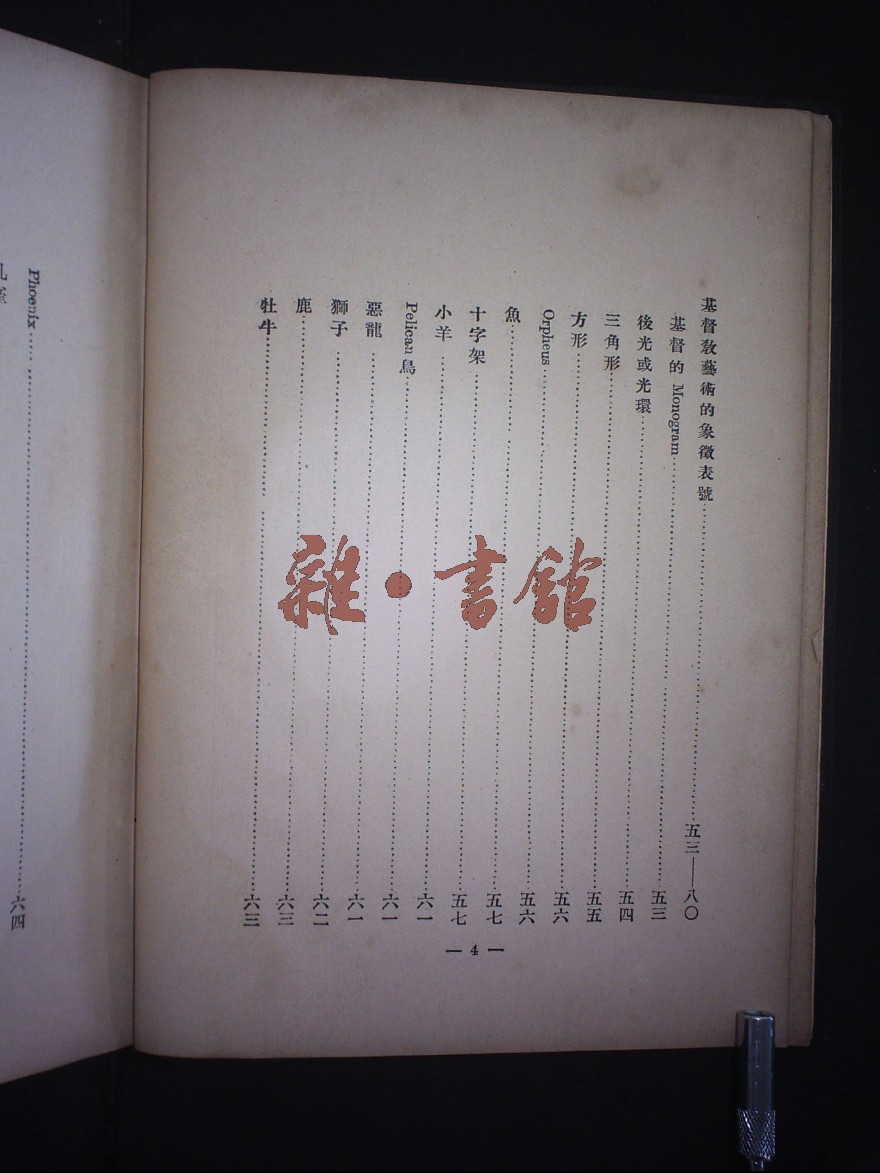 基督教藝術的象徵表號……五三—八〇
基督的 Monogram……五三
後光或光環……五四
三角形……五五
方形……五六
Orpheus……五六
魚……五七
十字架……五七
小羊……六一
Pelican 鳥……六一
惡龍……六一
獅子……六二
鹿……六三
牡牛……六三
— 4 —
Phoenix……六四
雜·書館